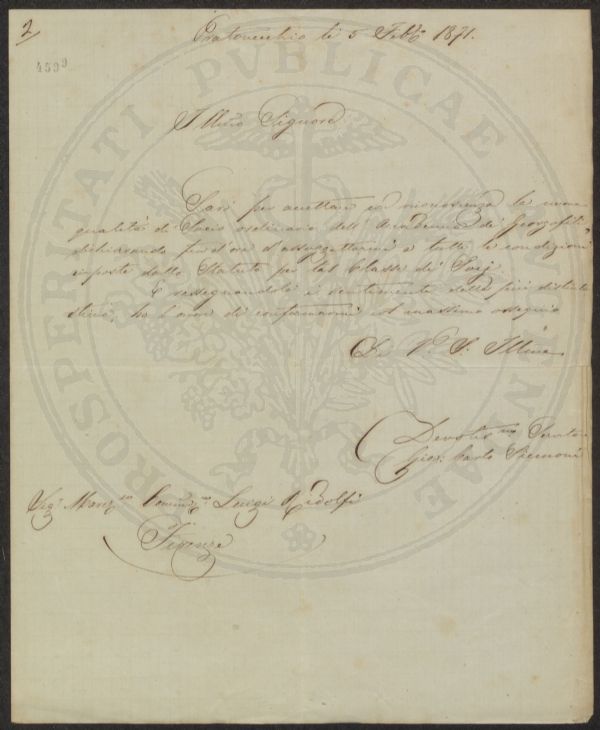 2
Pratovecchio li 5 Febb.º 1871.
4599
PROSPERITATI PVBLICAE
Illmo Signore
Sarò per accettare con riconoscenza la
qualità di Socio ordinario dell'Accademia dei Georgofili,
dichiarando fin d'ora d'assoggettarmi a tutte le condizioni
imposte dallo Statuto per tal Classe di Socj.
E rassegnandole i sentimenti della più distinta
stima, ho l'onore di confermarmi col massimo ossequio
Di V.S. Illma
Devotis.mo Servitore
Carlo Siemoni
Sig.r March.se Luigi Ridolfi
Firenze